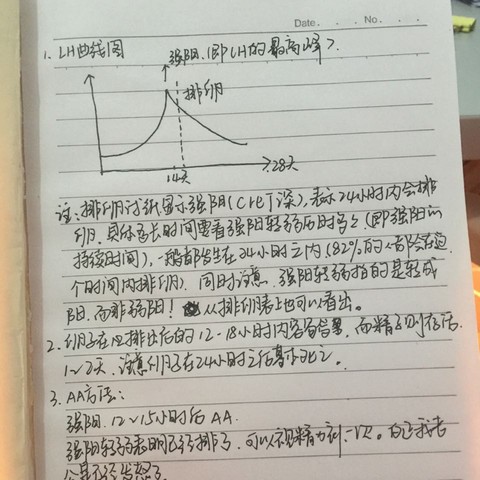 Date. . . No. . .
1. LH曲线图
强阳.(即LH的最高峰).
排卵
14天
28天
注:排卵试纸显示强阳(C化T深),表示24小时内会排
卵.具体多长时间要看强阳转弱历时多久(即强阳的
持续时间),一般都发生在24小时之内(82%的人都会在这
个时间内排卵).同时注意.强阳转弱指的是转成
阳.而非弱阳! 从排卵表上也可以看出。
2. 卵子在 排出后的12-18小时内容易 ,而精子则存活
1~3天.注意卵子在24小时之后基本死亡。
3. AA方法:
强阳.12~15小时后AA.
强阳转弱表明已经排了.可以视精力 一次。